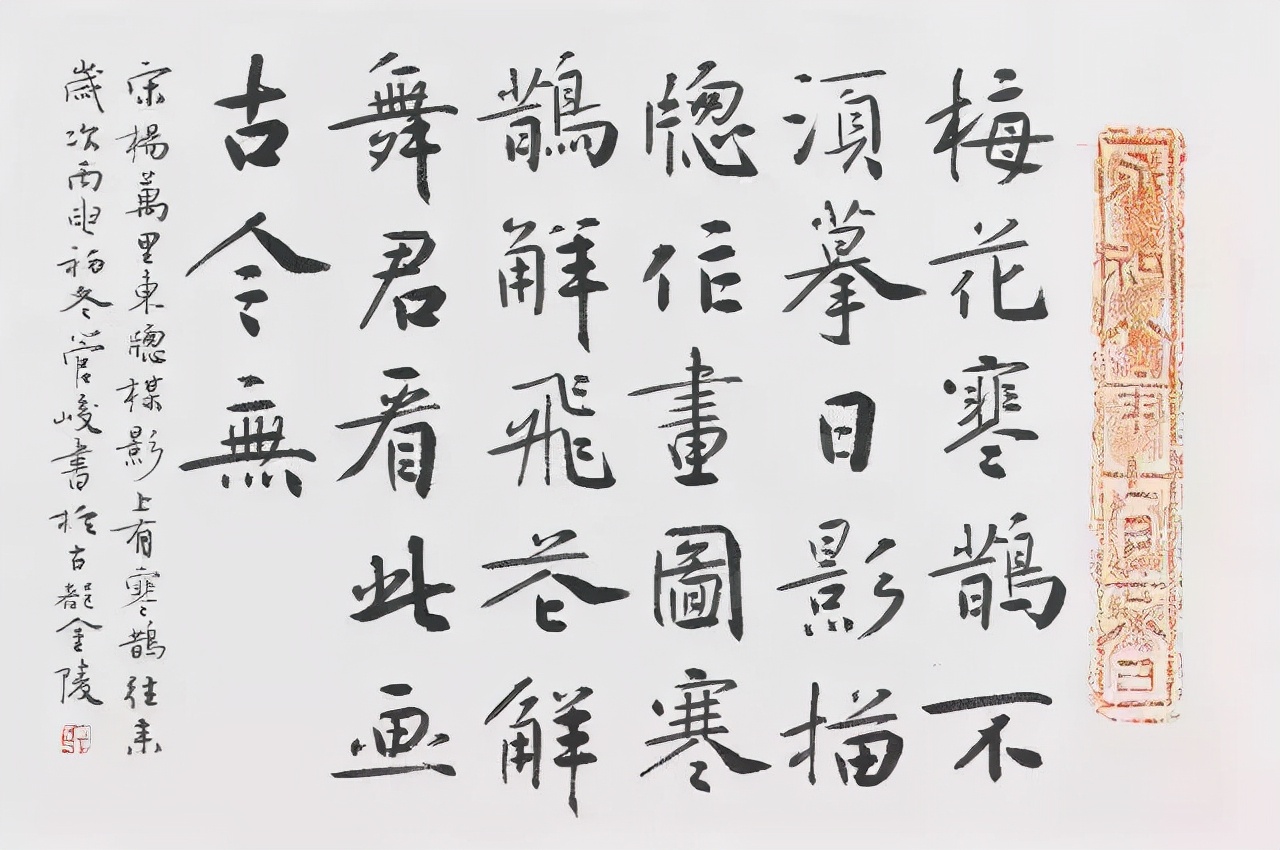 梅花寒鵲不
須摹日影描
牕作畫圖寒
鵲解飛花解
舞君看此画
古今無
宋楊萬里東牕楳影上有寒鵲往来
歲次丙申初冬管峻書於古都金陵